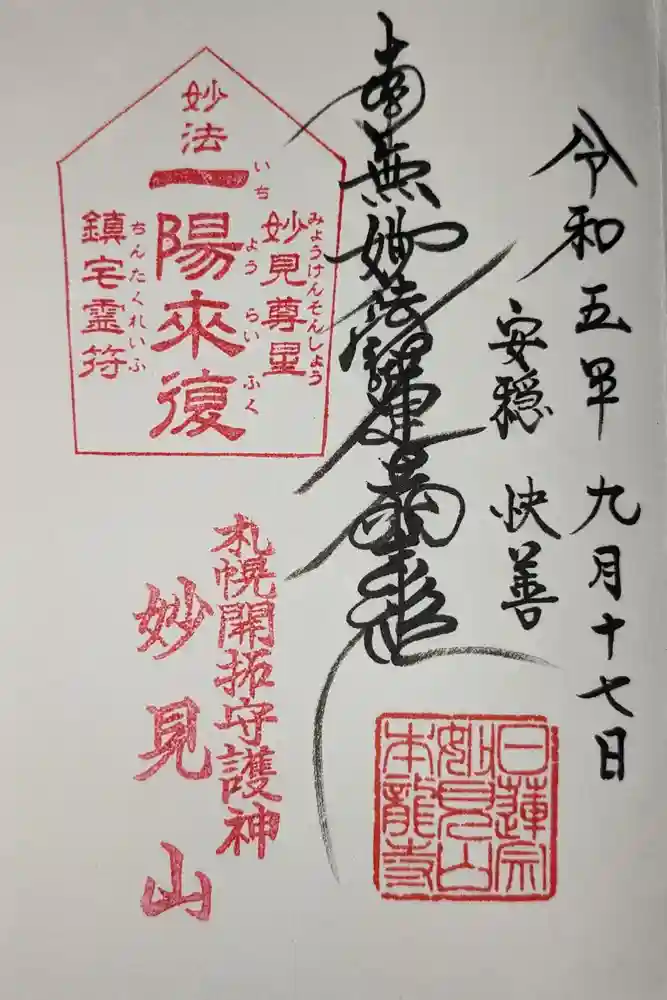 令和五年九月十七日
安穏 快善
南無妙法蓮華経
妙法
一陽来復
いち よう らい ふく
妙見尊星
みょうけんそんしょう
鎮宅霊符
ちんたくれいふ
札幌開拓守護神
妙見山
日蓮宗
妙見山
本龍寺